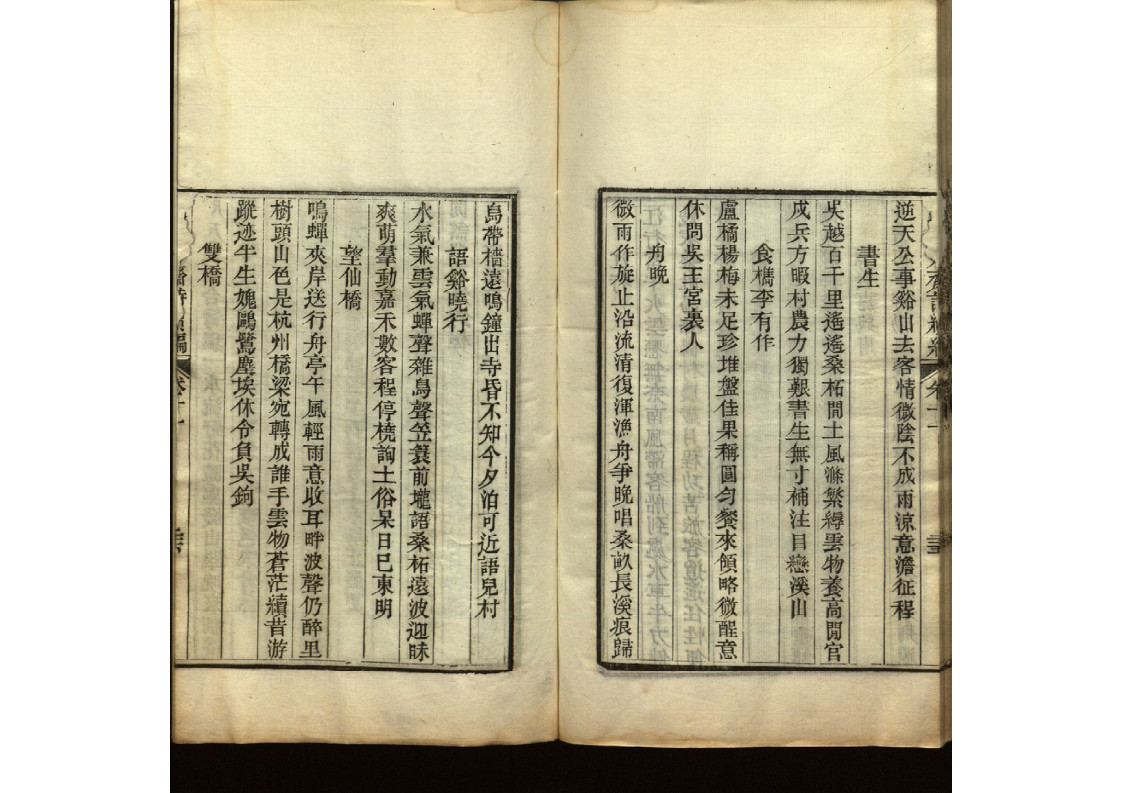 逆天公事谿山去客情微陰不成雨涼意澹征程
書生
吳越百千里遙遙桑柘間土風滌繁縟雲物養高閒官
戍兵方暇村農力獨艱書生無寸補注目戀溪山
食檇李有作
盧橘楊梅未足珍堆盤佳果稱圓勻餐來領略微醒意
休問吳王宮裏人
舟晚
微雨作旋止沿流清復渾漁舟爭晚唱桑畝長溪痕歸
鳥帶檣遠鳴鐘出寺昏不知今夕泊可近語兒村
語谿曉行
水氣兼雲氣蟬聲雜鳥聲笠蓑前壠語桑柘遠波迎昧
爽萌羣動嘉禾數客程停橈詢土俗杲日巳東明
望仙橋
鳴蟬夾岸送行舟亭午風輕雨意收耳畔波聲仍醉里
樹頭山色是杭州橋梁宛轉成誰手雲物蒼茫續昔游
蹤迹半生媿鷗鷺塵埃休令負吳鉤
雙橋